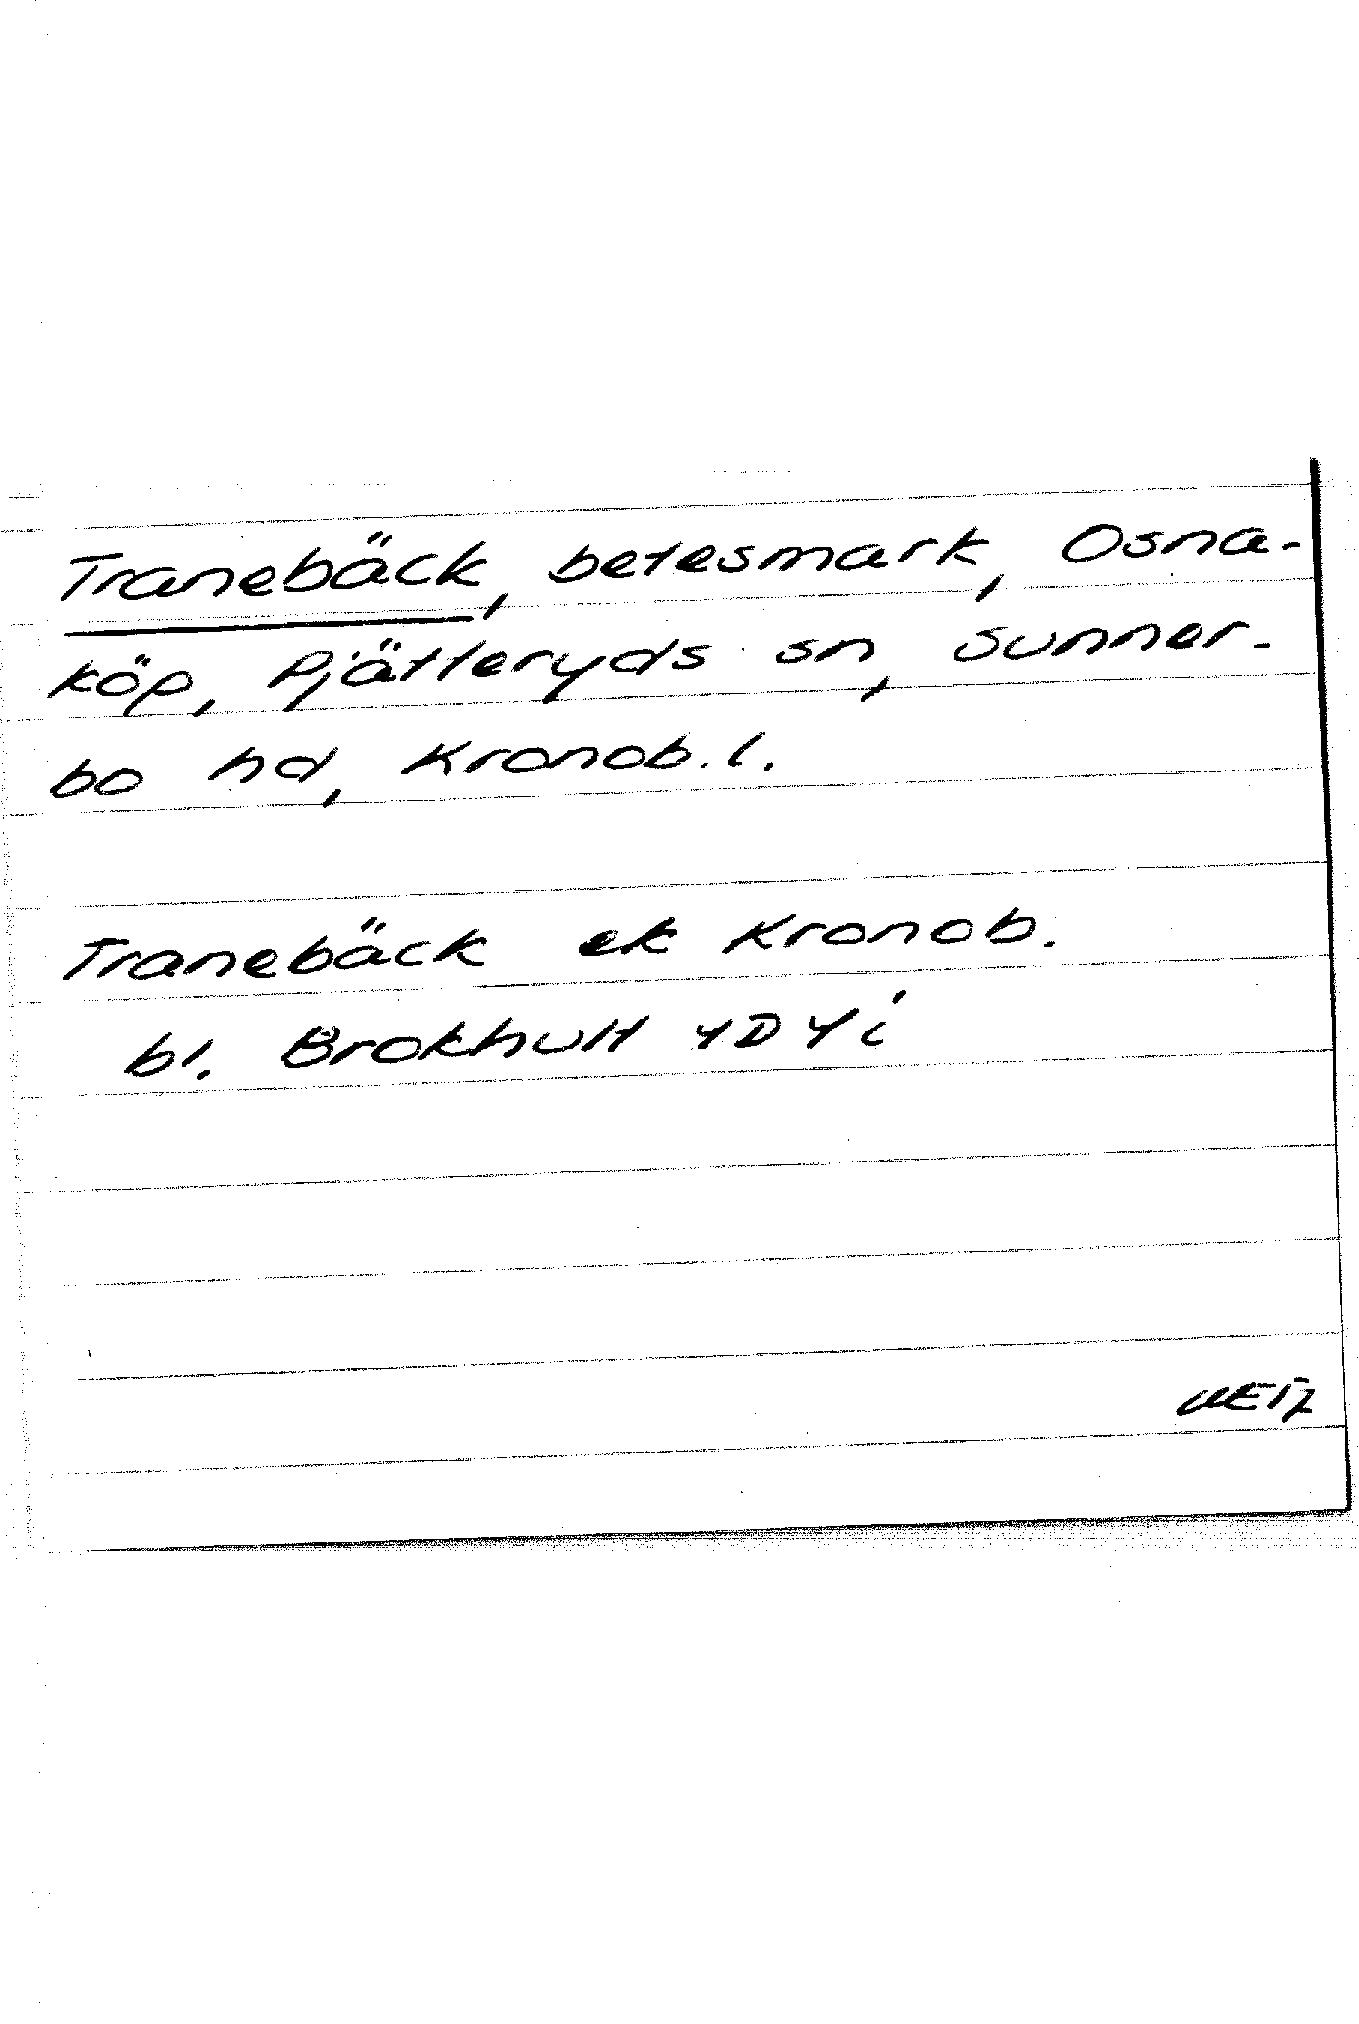 Tranebäck, betesmark, Osna-
köp, Pjätteryds sn, Sunner-
bo hd, Kronob. l.
Tranebäck ek Kronob.
bl. Brokhult 4D 4i